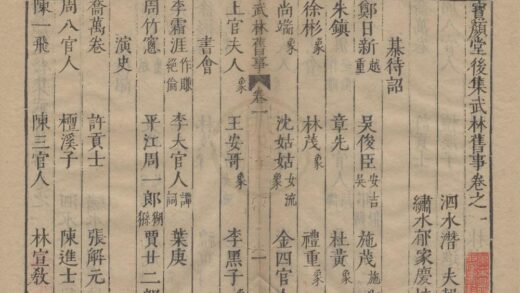 寶顏堂後集武林舊事卷之一
泗水潛夫
繡水郁家慶
棊待詔
鄭日新 越童 吳俊臣 安吉吳 施茂 施
朱鎮 童先 杜黃 象
徐彬 象 林茂 象 禮重 象
尚端 象 沈姑姑 象女流 金四官人
上官大夫 象 王安哥 象 李黑子 象
武林舊事 卷一 一
書會
李霜涯 作賺絕倫 李大官人 譚詞 葉庚
周竹窻 平江周二郎 猢猻 賈廿二郎
演史
喬萬卷 許貢士 張解元
周八官人 檀溪子 陳進士
陳一飛 陳三官人 林宣敎